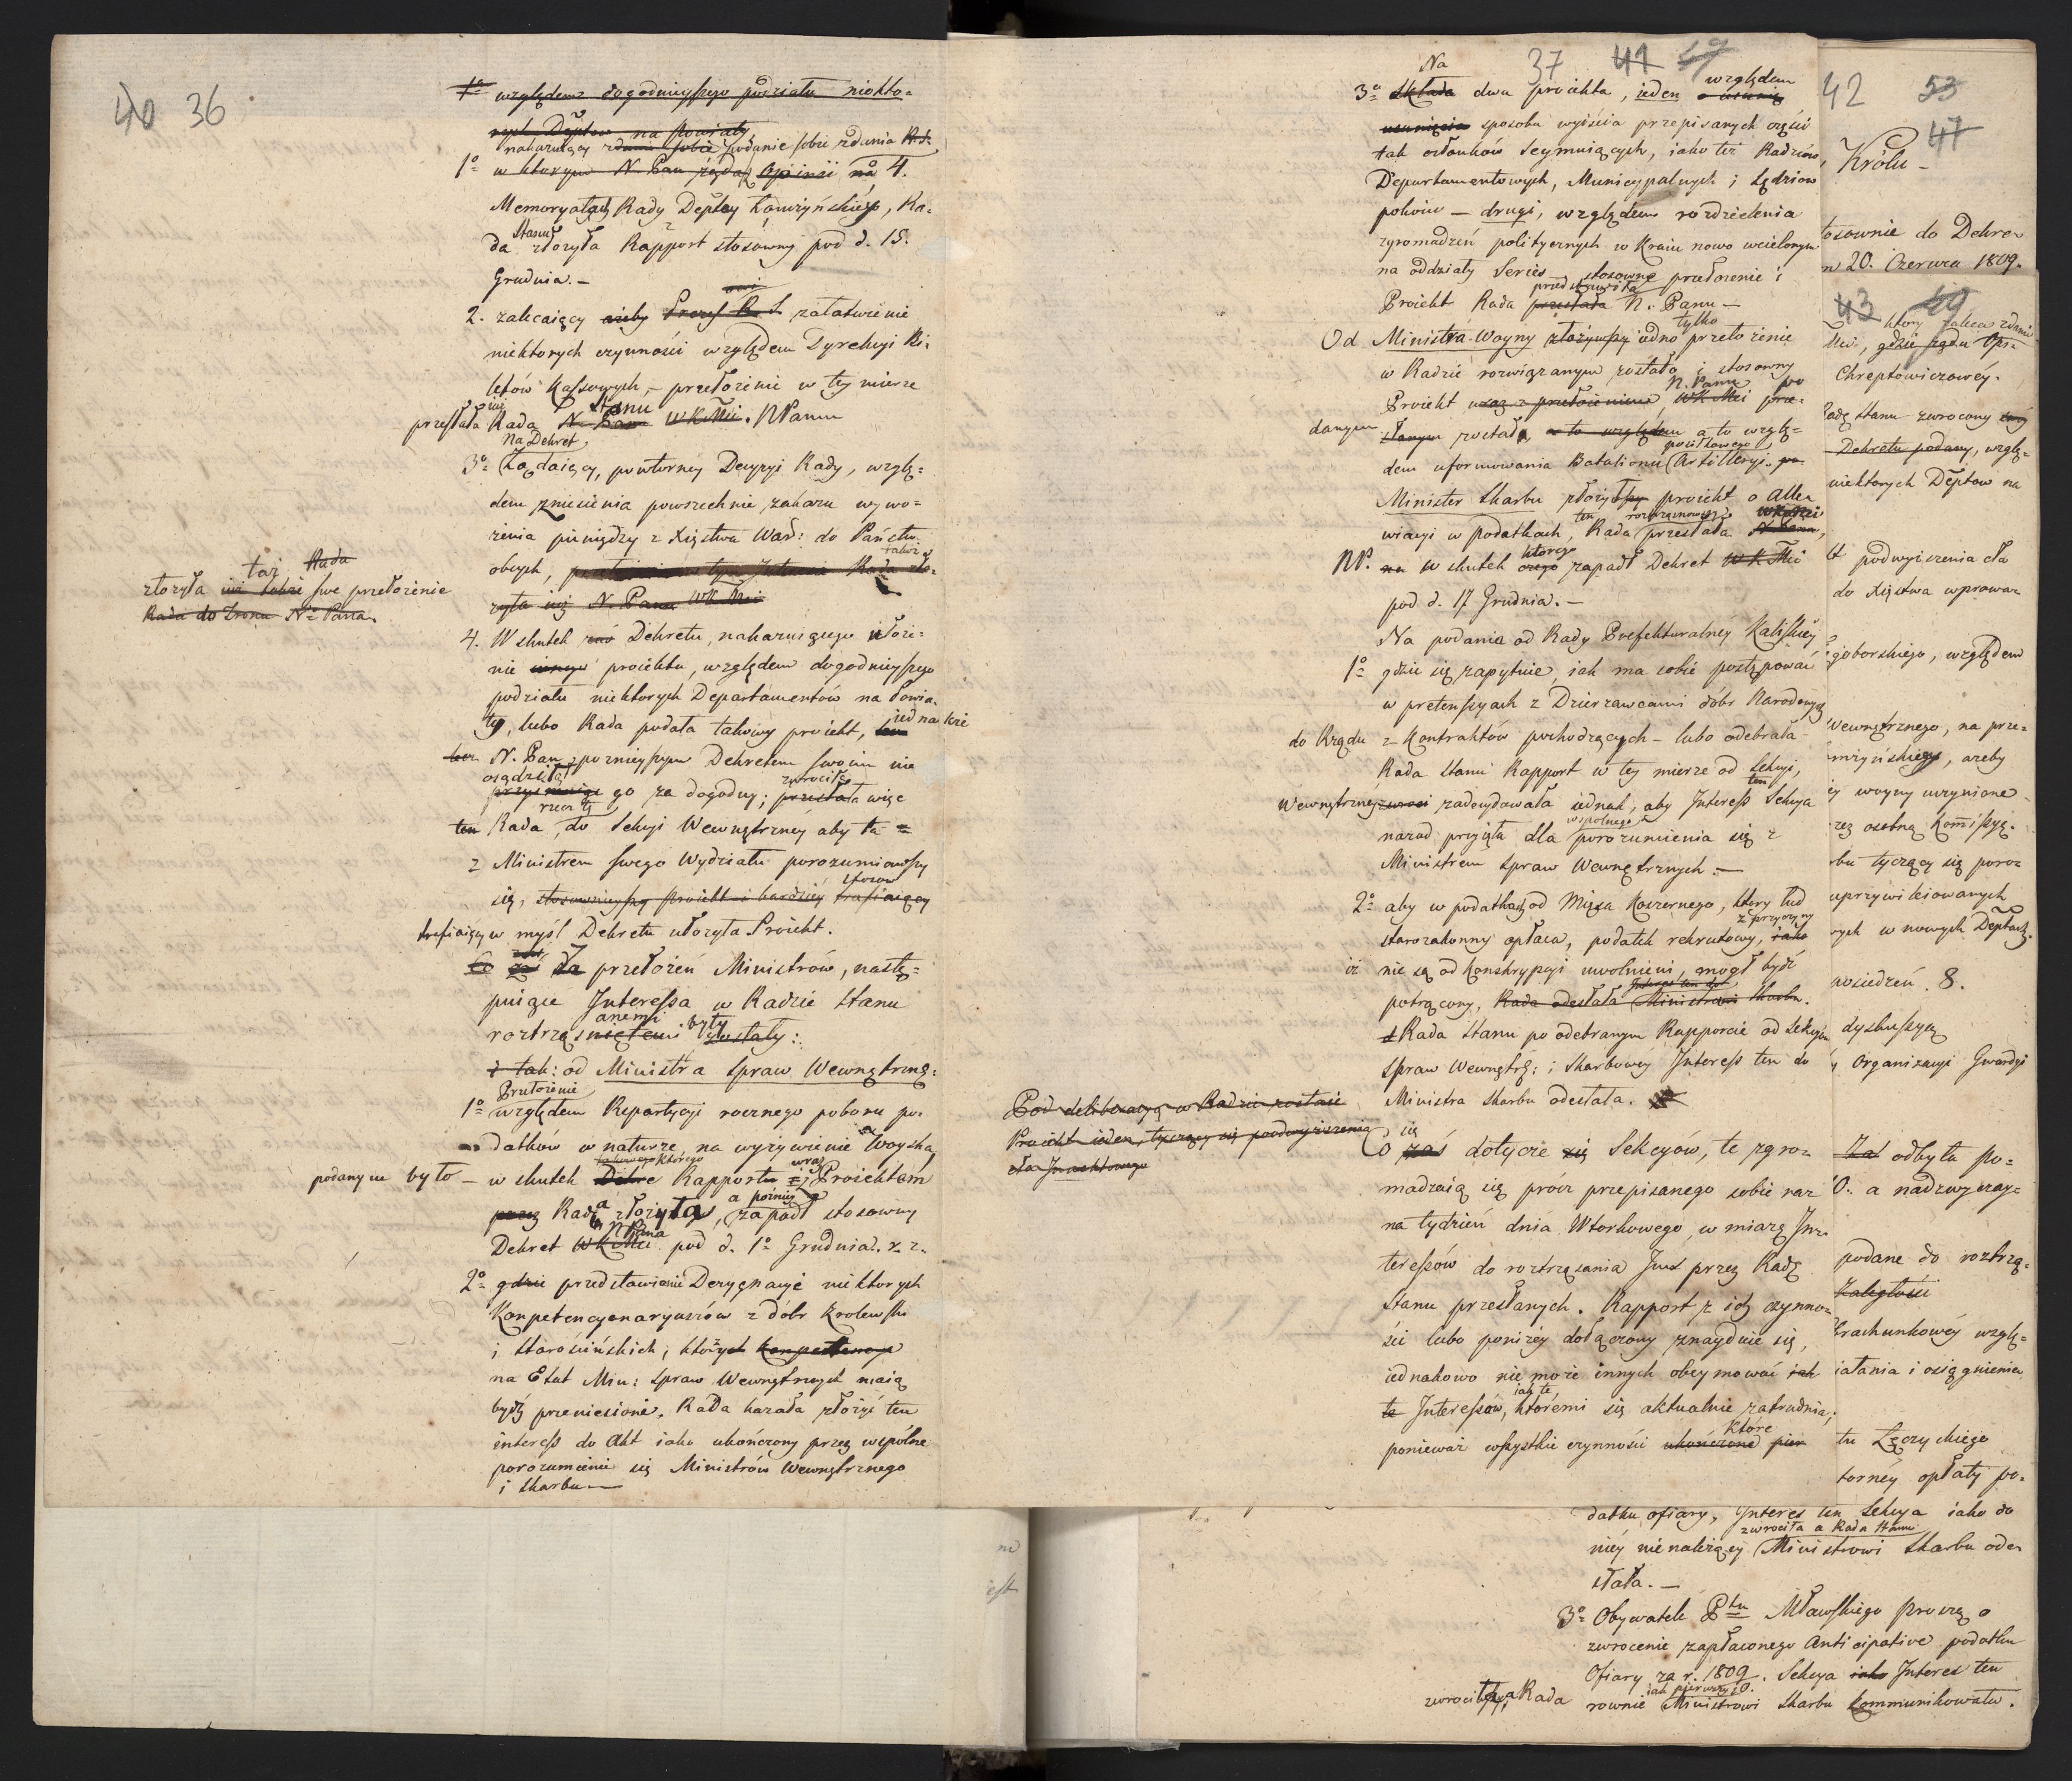 40 36
1º względem dogodnieyszego podziału niekto=
rych Deptow na Powiaty
nakazuiący zdanie sobie podanie sobie zdania
1º w ktorym N. Pan żąda Opinii nad 4.
Memoryałach Rady Deptey Łomżyńskiey, Ra=
da Stanu złożyła Rapport stosowny pod d. 15.
Grudnia. —
2. zalecaiący ażeby załatwienie
niektorych czynności względem Dyrekcyi Bi=
letów Kassowych, — przełożenie w tey mierze
przesłała już Rada Stanu N. Panu W K Mci. NPanu
Na Dekret
3º Żądaiący, powtorney Decyzyi Rady, wzglę=
dem zniesienia powszechnie zakazu wywo=
żenia pieniędzy z Xięstwa War: do Państw
obcych,
żyła iuż N. Panu WK Mci
taż Rada
złożyła iuż także swe przełożenie
Rada do Tronu Nº Pana.
4. W skutek zaś Dekretu, nakazuiącego ułoże=
nie innego proiektu, względem dogodnieyszego
podziału niektorych Departamentów na Powia=
ty, lubo Rada podała takowy proiekt, jednakże
N. Pan poznieyszym Dekretem swoim nie
osądził
go za dogodny; przesłała zwrociła więc
rzecz tę
ten Rada, do Sekcyi Wewnętrzney aby ta =
z Ministrem swego Wydziału porozumiawszy
się, stosownieyszy proiekt i bardziey trafiaiący
trafiaiący w myśl Dekretu ułożyła Proiekt.
Co zaś do przełożeń Ministrów, nastę=
puiące Interessa w Radzie Stanu
roztrząsnięteni anemi były zostały:
i tak: od Ministra Spraw Wewnętrzné=
Przełożenie
1º względem Repartycyi rocznego poboru po=
datków w naturze na wyżywienie Woyska,
takowego którego wraz
podanym było — w skutek Dekre Rapportu z Proiektem
przez Rada złożyła, a poźniey zapadł stosowny
NPana
Dekret WKMci pod d. 1º Grudnia. r. z.
2º gdzie przedstawienie Dezygnacyi niektorych
Kompetencyonaryuszów z dóbr Krolewski
i Starościńskich, którzych kompetencye
na Etat Min: Spraw Wewnętrznych maią
bydź przeniesione. Rada kazała złożyć ten
interess do Akt iako ukończony przez wspólne
porozumienie się Ministrów Wewnętrznego
i Skarbu —
37 41
Na
3º Składa dwa proiekta, ieden względem
usunięcia sposobu wyiścia przepisanych części
tak członków Seymuiących, iako też Radzców
Departamentowych, Municypalnych i Sędziow
pokoiu — drugi, względem rozdzielenia
zgromadzeń politycznych w Kraiu nowo wcielonym
na oddziały Series — stosowne przełożenie i
Proiekt Rada przesłała przedstawiła N. Panu —
Od Ministra Woyny złożywszy iedno tylko przełożenie
w Radzie rozwiązanym zostało i stosowny
Proiekt wraz z przełożeniem WK Mci N. Panu po
danym słanym został, a to względem a to wzglę=
dem uformowania Batalionu posiłkowego Artilleryi.
Minister Skarbu złożył proiekt o Alle=
wiacyi w podatkach, ten Rada roztrząsnowszy przesłała N. Panu,
NP. na w skutek czego ktorego zapadł Dekret W K Mci
pod d. 17 Grudnia. —
Na podania od Rady Prefekturalney Kaliskiey
1º gdzie się zapytuie, iak ma sobie postępować
w pretensyach z Dzierzawcami dóbr Narodowych
do Rządu z Kontraktów pochodzących — lubo odebrała
Rada Stanu Rapport w tey mierze od Sekcyi,
Wewnętrzney zadecydowała iednak, aby Interess ten Sekcya
nazad przyięła dla wspolnego porozumienia się z
Ministrem Spraw Wewnętrznych. —
2º aby w podatkach od Mięsa Koszernego, ktory lud
starozakonny opłaca, podatek rekrutowy, z przyczyny iako
iż nie są od Konskrypcyi uwolnieni, mogł bydź
potrącony, Rada odesłała Interes ten do Ministrowi Skarbu.
Rada Stanu po odebranym Rapporcie od Sekcyów
Spraw Wewnętrz: i Skarbowey Interess ten do
Ministra Skarbu odesłała.
Pod deliberacyą w Radzie zostaie
Proiekt ieden, tyczący się podwyższenia
cła Transitowego
Co zaś się dotycze się Sekcyów, te zgro=
madzaią się prócz przepisanego sobie raz
na tydzień dnia Wtorkowego, w miarę In=
teressów do roztrząsania Im przez Radę
Stanu przesłanych. Rapport z ich czynno=
ści lubo poniżey dołączony znayduie się,
iednakowo nie może innych obeymować iak
iak te
te Interessów, któremi się aktualnie zatrudnia;
ponieważ wszystkie czynności które ukończone
42 53
47
Królu —
tosownie do Dekre=
n 20. Czerwca 1809.
43 49
ktory zaleca zdanie
Mci, gdzie żąda Opi=
Chreptowiczowéy.
Radę Stanu zwrocony
Dekretu podany, wzglę=
niektorych Deptow na
podwyższenia cła
do Xięstwa wprowa=
goborskiego, względem
Wewnętrznego, na prze=
mżyńskiego, ażeby
woyny uczynione
rzez osobną Kommissyę.
rbu tyczący się poro=
uprzywileiowanych
wych w nowych Deptach.
posiedzeń. 8.
dyskussyą
Organizacyi Gwardyi
Za odbyła po=
0. a nadzwyczay=
podane do roztrzą=
zaległości
hrachunkowéy wzglę=
iałania i osiągnienia
tu Łęczyckiego
tornéy opłaty po=
datku ofiary, Interes ten Sekcya iako do
zwrociła a Rada Stanu
niéy nie należący Ministrowi Skarbu ode=
słała. —
3º Obywatele Ptu Mławskiego proszą o
zwrocenie zapłaconego Anticipative podatku
Ofiary za r. 1809. Sekcya iako Interes ten
iak pierwszy
zwrociła, a Rada rownie Ministrowi Skarbu kommunikowała.